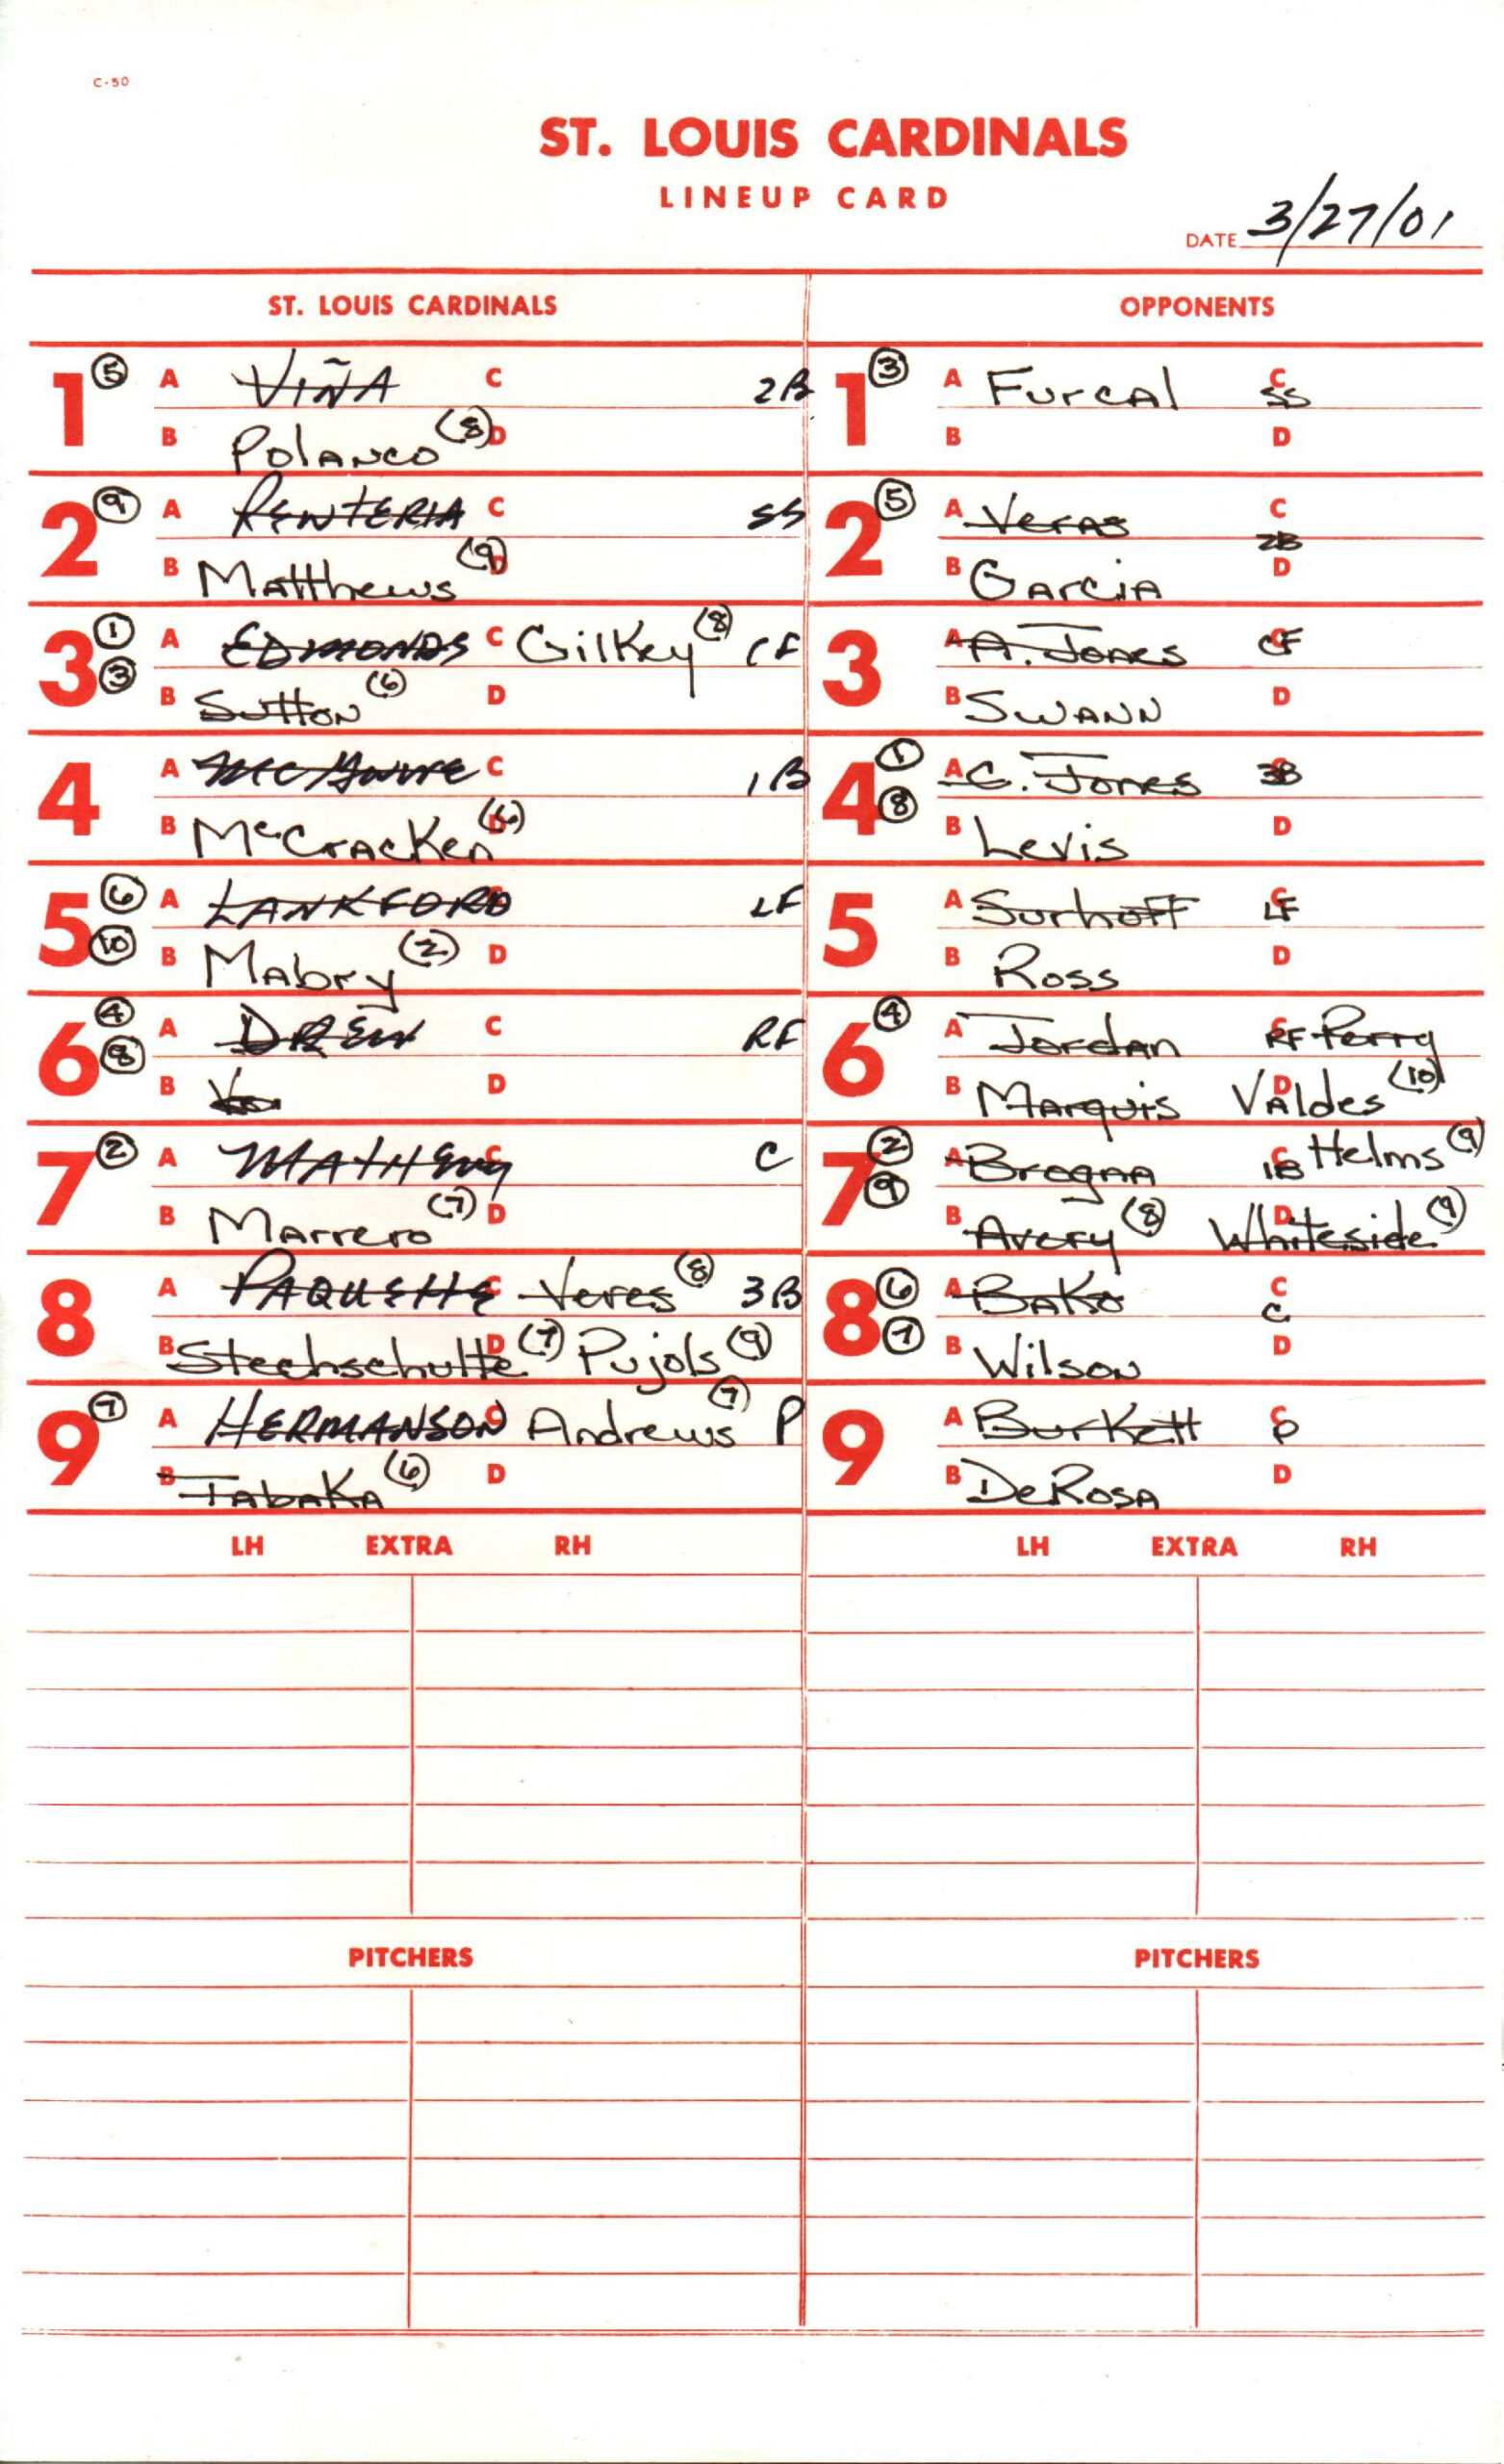 C-50
ST. LOUIS CARDINALS
LINEUP CARD
DATE 3/27/01
ST. LOUIS CARDINALS OPPONENTS
1 5 A VIÑA C 2B 1 3 A Furcal C SS
B Polanco (8) D B D
2 9 A RENTERIA C SS 2 5 A Veras C 2B
B Matthews (9) B Garcia D
3 1 A EDMONDS C Gilkey (8) CF 3 A A. Jones C CF
3 B Sutton (6) D B SWANN D
4 A McGwire C 1B 4 1 A C. Jones 3B
B McCracken (6) 8 B Levis D
5 6 A LANKFORD C LF 5 A Surhoff C LF
10 B Mabry (2) D B Ross D
6 4 A DREW C RF 6 4 A Jordan C RF Perry
8 B D B Marquis D Valdes (10)
7 2 A MATHENY C C 7 2 A Brogna C 1B Helms (9)
B Marrero (7) D 9 B Avery (8) D Whiteside (9)
8 A PAQUETTE C Veres (8) 3B 8 6 A Bako C C
B Stechschulte D (7) Pujols (9) 7 B Wilson D
9 7 A HERMANSON C Andrews (7) P 9 A Burkett C P
B Tabaka (6) D B DeRosa D
LH EXTRA RH LH EXTRA RH
PITCHERS PITCHERS